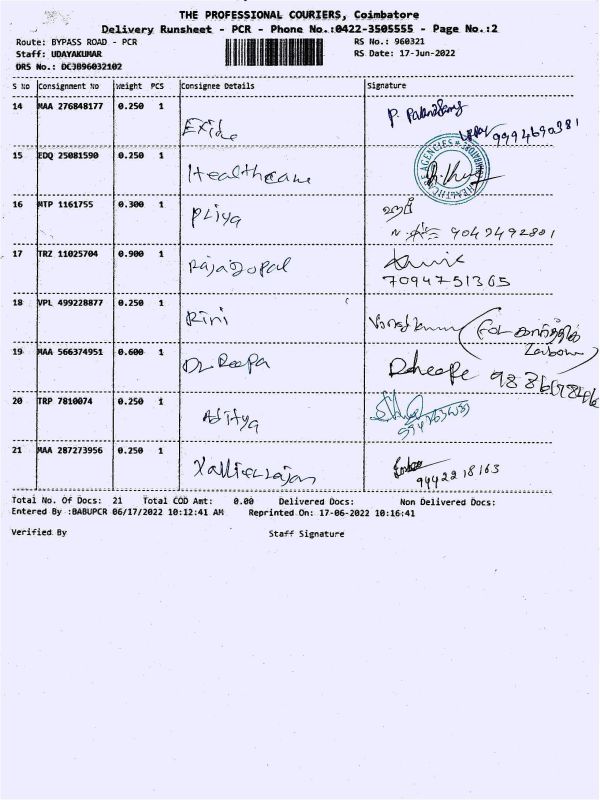 THE PROFESSIONAL COURIERS, Coimbatore
Delivery Runsheet - PCR - Phone No.:0422-3505555 - Page No.:2
Route: BYPASS ROAD - PCR RS No.: 960321
Staff: UDAYAKUMAR RS Date: 17-Jun-2022
DRS No.: DCJB96032102
S No Consignment No Weight PCS Consignee Details Signature
14 MAA 276848177 0.250 1 Exide P. Palanisamy
9994690281
15 EDQ 25081590 0.250 1 Healthcare
AGENCIES
16 MTP 1161755 0.300 1 Priya
9042492801
17 TRZ 11025704 0.900 1 Rajagopal
7094751365
18 VPL 499228877 0.250 1 Rini
19 MAA 566374951 0.600 1 Dr Deepa Dheepe
20 TRP 7810074 0.250 1 Aditya
21 MAA 287273956 0.250 1
9442218163
Total No. Of Docs: 21 Total COD Amt: 0.00 Delivered Docs: Non Delivered Docs:
Entered By :BABUPCR 06/17/2022 10:12:41 AM Reprinted On: 17-06-2022 10:16:41
Verified By Staff Signature